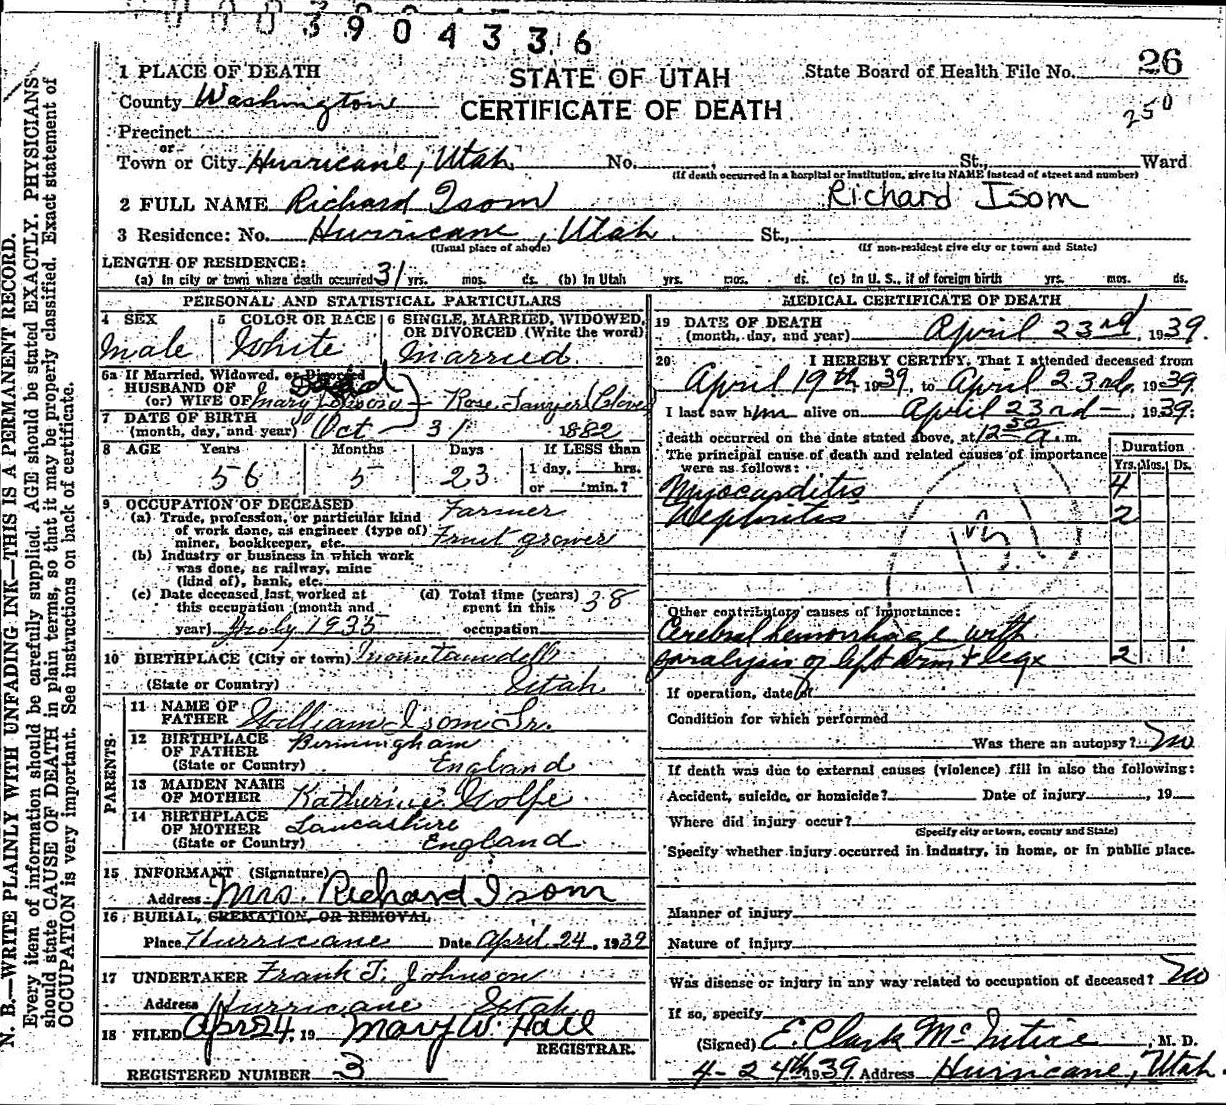 0 0 0 3 9 0 4 3 3 6
26
STATE OF UTAH
CERTIFICATE OF DEATH
State Board of Health File No.
250
1 PLACE OF DEATH
County Washington
Precinct
or
Town or City Hurricane, Utah No. , St., Ward
(If death occurred in a hospital or institution, give its NAME instead of street and number)
2 FULL NAME Richard Isom Richard Isom
3 Residence: No. Hurricane, Utah. St.,
(Usual place of abode) (If non-resident give city or town and State)
LENGTH OF RESIDENCE:
(a) In city or town where death occurred 31 yrs. mos. ds. (b) In Utah yrs. mos. ds. (c) in U. S., if of foreign birth yrs. mos. ds.
PERSONAL AND STATISTICAL PARTICULARS
4 SEX 5 COLOR OR RACE 6 SINGLE, MARRIED, WIDOWED, OR DIVORCED (Write the word)
Male White Married.
6a If Married, Widowed, or Divorced
HUSBAND OF
(or) WIFE OF Mary - Rose
7 DATE OF BIRTH
(month, day, and year) Oct - 31 1882
8 AGE Years Months Days If LESS than
56 5 23 1 day, hrs.
or min.?
9 OCCUPATION OF DECEASED
(a) Trade, profession, or particular kind of work done, as engineer (type of) miner, bookkeeper, etc. Farmer
Fruit grower
(b) Industry or business in which work was done, as railway, mine (kind of), bank, etc.
(c) Date deceased last worked at this occupation (month and year) July 1935
(d) Total time (years) spent in this occupation 38
10 BIRTHPLACE (City or town) Mountaindell
(State or Country) Utah
PARENTS
11 NAME OF FATHER William Isom Sr.
12 BIRTHPLACE OF FATHER Birmingham
(State or Country) England
13 MAIDEN NAME OF MOTHER Katherine Wolfe
14 BIRTHPLACE OF MOTHER Lancashire
(State or Country) England
15 INFORMANT (Signature)
Address Mrs. Richard Isom
16 BURIAL, CREMATION, OR REMOVAL
Place Hurricane Date April 24, 1939
17 UNDERTAKER Frank T. Johnson
Address Hurricane Utah
18 FILED Apr 24, 19 Mary W. Hall
REGISTRAR.
REGISTERED NUMBER 3
MEDICAL CERTIFICATE OF DEATH
19 DATE OF DEATH
(month, day, and year) April 23rd, 1939.
20 I HEREBY CERTIFY, That I attended deceased from
April 19th 1939, to April 23rd, 1939
I last saw him alive on April 23rd -, 1939:
death occurred on the date stated above, at 12 50 a. m.
The principal cause of death and related causes of importance were as follows:
Duration
Yrs. Mos. Ds.
Myocarditis 4
Nephritis 2
Other contributory causes of importance:
Cerebral hemorrhage with
paralysis of left arm & legx 2
If operation, date of
Condition for which performed
Was there an autopsy? No
If death was due to external causes (violence) fill in also the following:
Accident, suicide, or homicide? Date of injury , 19
Where did injury occur?
(Specify city or town, county and State)
Specify whether injury occurred in industry, in home, or in public place.
Manner of injury
Nature of injury
Was disease or injury in any way related to occupation of deceased? No
If so, specify
(Signed) E. Clark McIntire, M. D.
4-24th 1939 Address Hurricane, Utah.
N. B.—WRITE PLAINLY WITH UNFADING INK—THIS IS A PERMANENT RECORD.
Every item of information should be carefully supplied. AGE should be stated EXACTLY. PHYSICIANS
should state CAUSE OF DEATH in plain terms, so that it may be properly classified. Exact statement of
OCCUPATION is very important. See instructions on back of certificate.